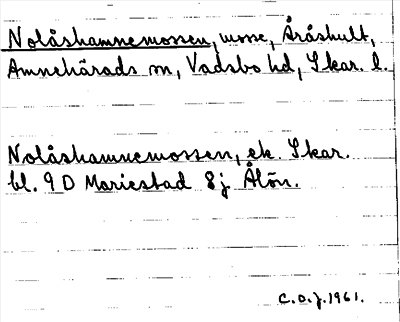 Nolåshamnemossen, mosse, Åråshult,
Amnehärads sn, Vadsbo hd, Skar. l.
Nolåshamnemossen, ek. Skar.
bl. 9 D Mariestad 8j Ålön.
C.O.J. 1961.